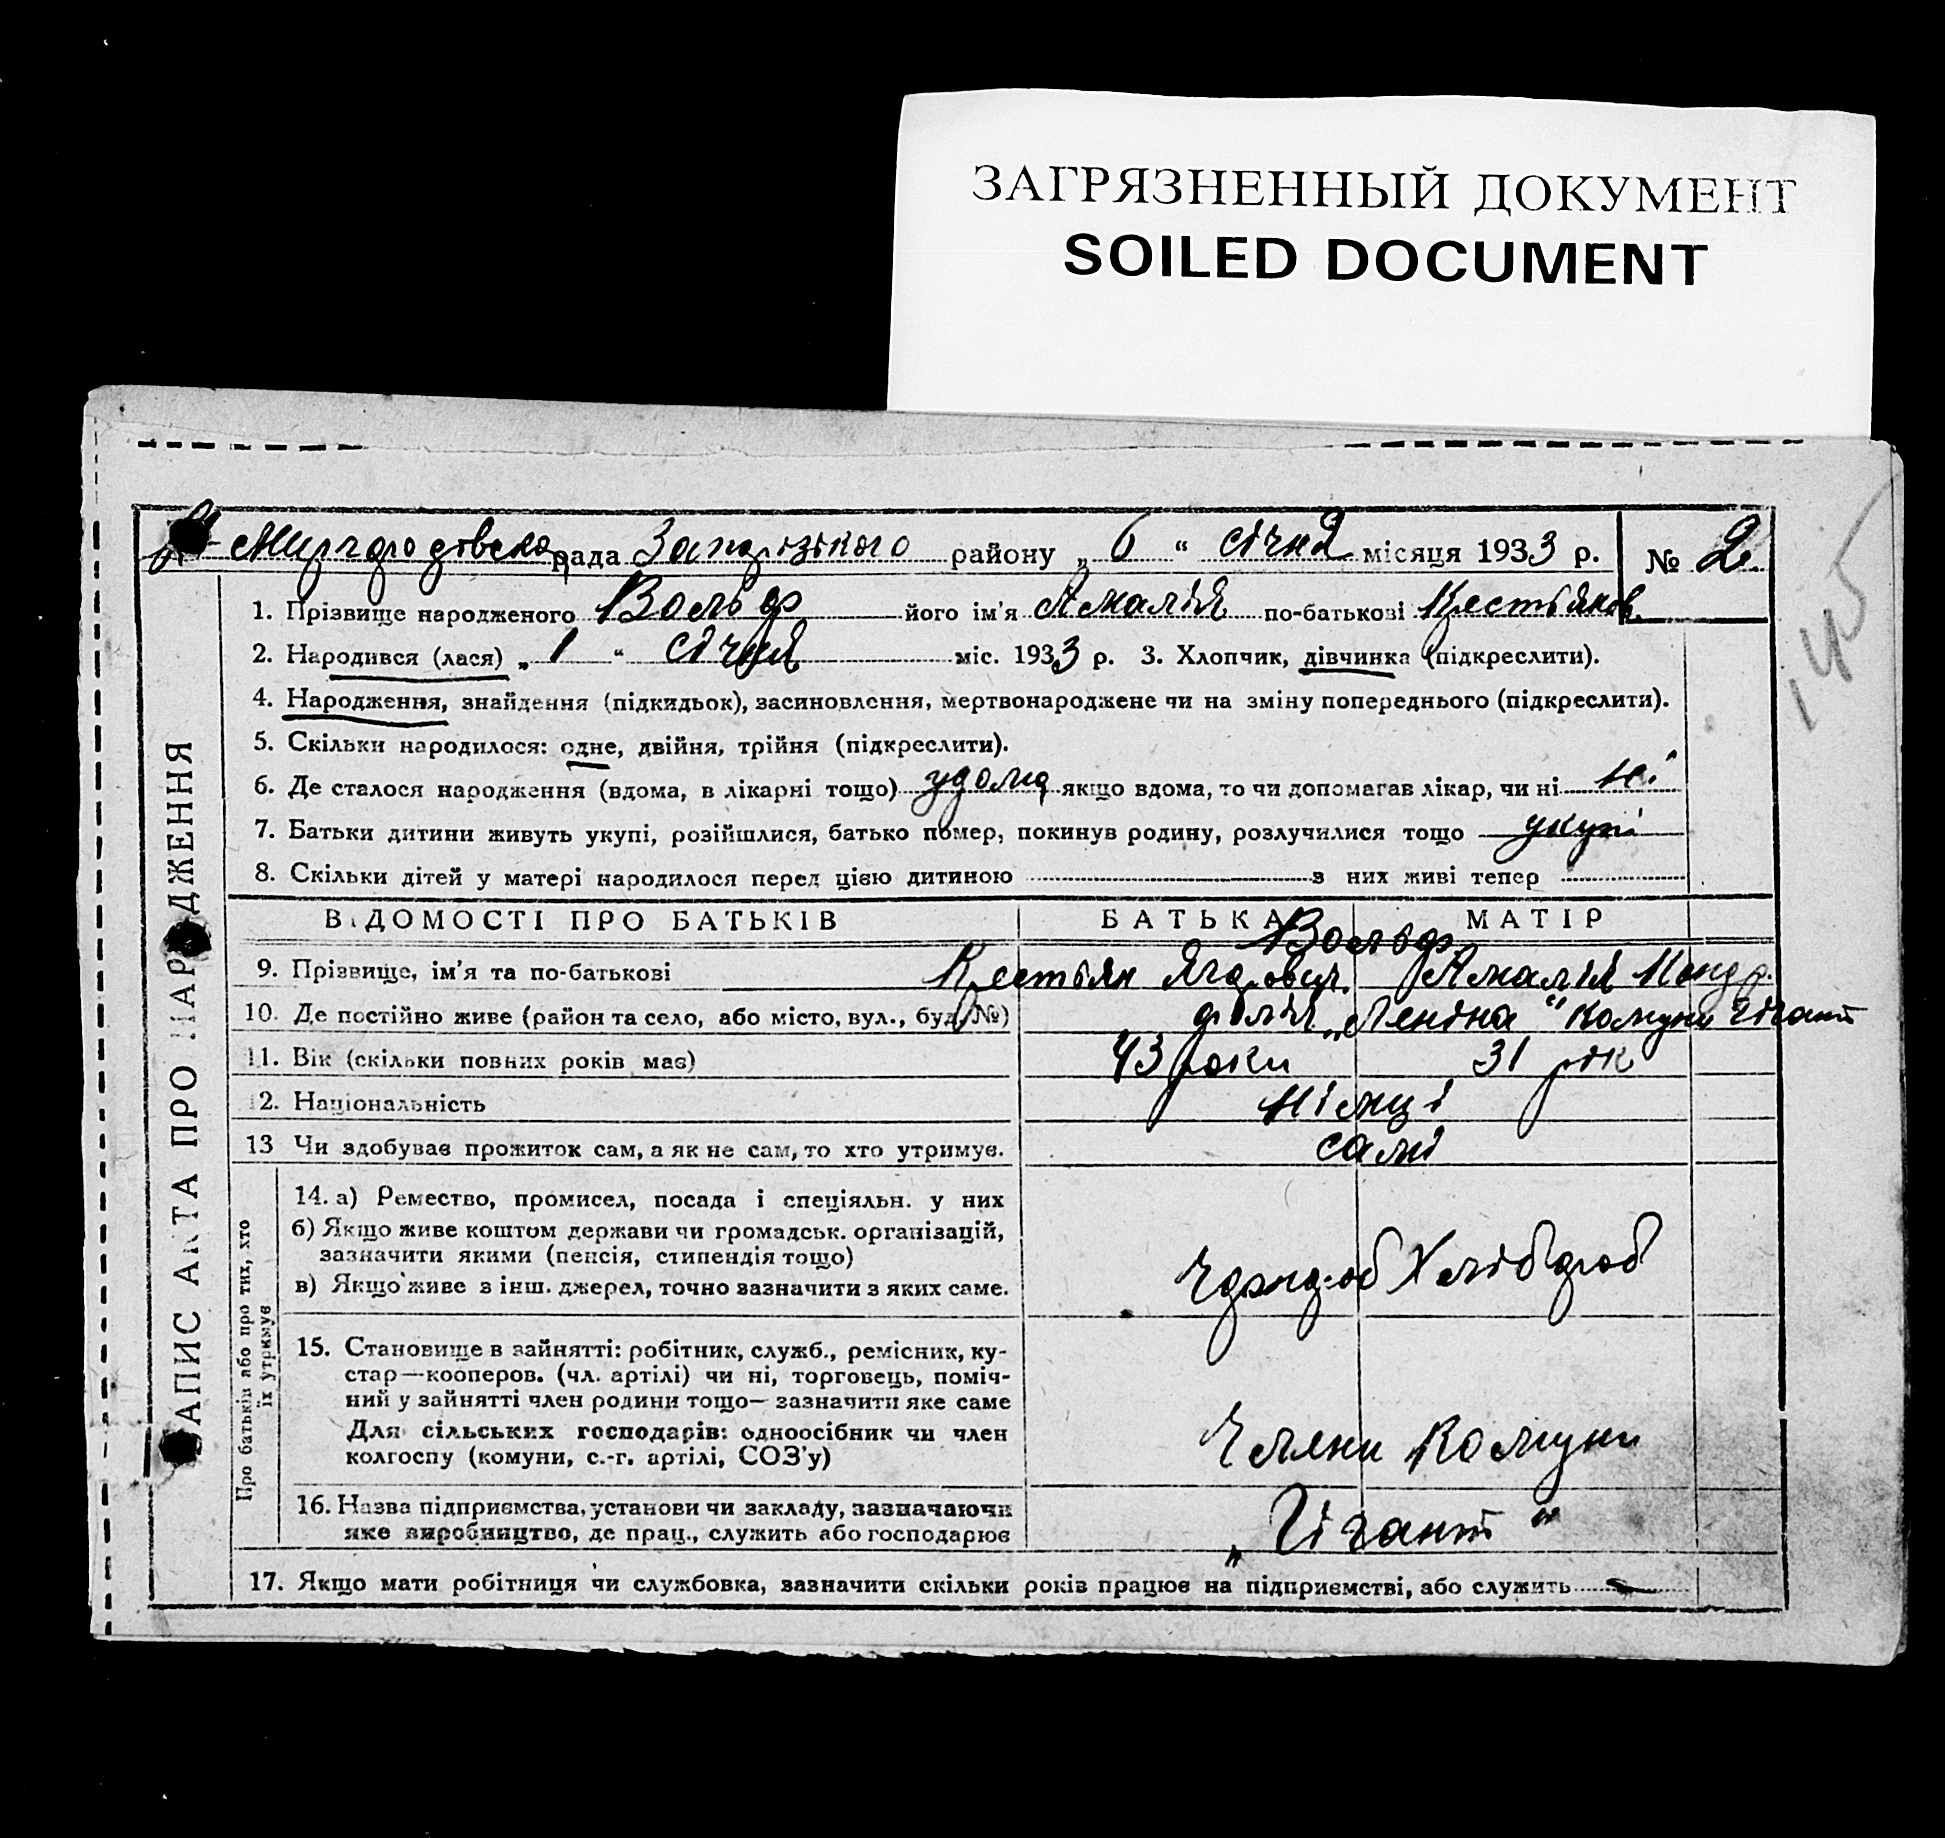 ЗАГРЯЗНЕННЫЙ ДОКУМЕНТ
SOILED DOCUMENT
145
рада Запорізького району „ 6 “ січня місяця 1933 р. № 2
1. Прізвище народженого Вольф його ім'я Амалія по-батькові Крестьянов.
2. Народився (лася) „ 1 “ січня міс. 1933 р. 3. Хлопчик, дівчинка (підкреслити).
4. Народження, знайдення (підкидьок), засиновлення, мертвонароджене чи на зміну попереднього (підкреслити).
5. Скільки народилося: одне, двійня, трійня (підкреслити).
6. Де сталося народження (вдома, в лікарні тощо) удома якщо вдома, то чи допомагав лікар, чи ні ні
7. Батьки дитини живуть укупі, розійшлися, батько помер, покинув родину, розлучилися тощо укупі
8. Скільки дітей у матері народилося перед цією дитиною з них живі тепер
ВІДОМОСТІ ПРО БАТЬКІВ БАТЬКА МАТІР
Вольф
9. Прізвище, ім'я та по-батькові Крестьян Ягорович. Амалія
10. Де постійно живе (район та село, або місто, вул., буд. №) філія „Леніна“ комуни Гігант
11. Вік (скільки повних років має) 43 роки 31 рік
12. Національність німці
13 Чи здобуває прожиток сам, а як не сам, то хто утримує. самі
14. а) Ремество, промисел, посада і спеціяльн. у них
б) Якщо живе коштом держави чи громадськ. організацій,
зазначити якими (пенсія, стипендія тощо)
в) Якщо живе з інш. джерел, точно зазначити з яких саме.
Хлібороб
15. Становище в зайнятті: робітник, служб., ремісник, ку-
стар—кооперов. (чл. артілі) чи ні, торговець, поміч-
ний у зайнятті член родини тощо— зазначити яке саме
Для сільських господарів: одноосібник чи член
колгоспу (комуни, с.-г. артілі, СОЗ'у)
Члени Комуни
16. Назва підприємства, установи чи закладу, зазначаючи
яке виробництво, де прац., служить або господарює
„Гігант“
17. Якщо мати робітниця чи службовка, зазначити скільки років працює на підприємстві, або служить —
ЗАПИС АКТА ПРО НАРОДЖЕННЯ
Про батьків або про тих, хто
їх утримує